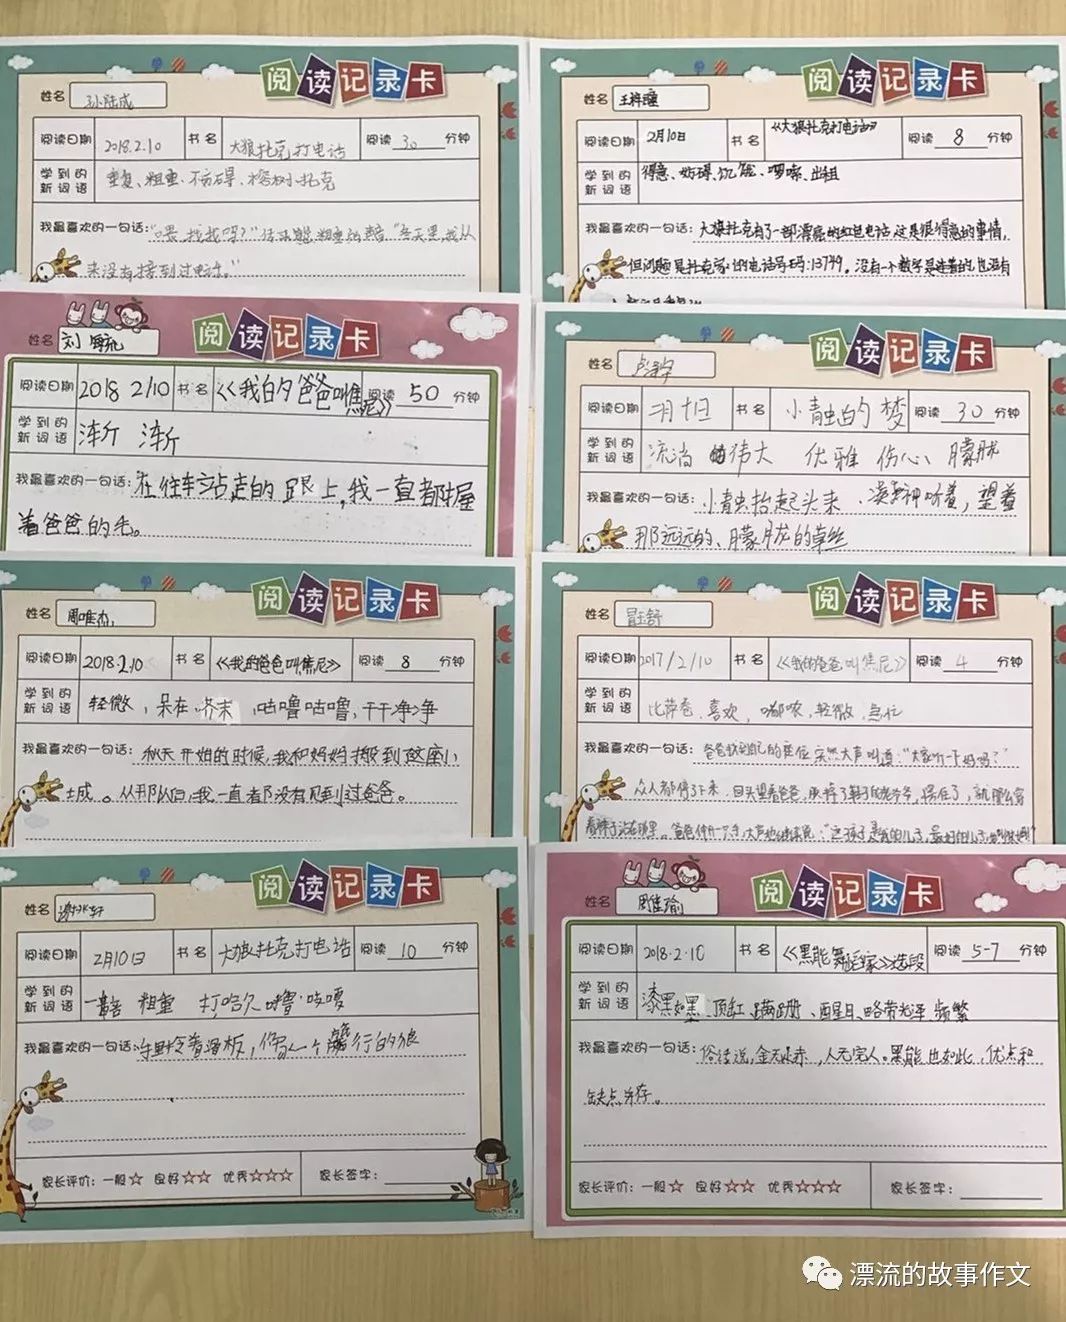 阅读记录卡
姓名 孙陆成
阅读日期 2018.2.10 书名 大狼托克打电话 阅读 30 分钟
学到的新词语 重复、粗重、不妨碍、榕树小托克
我最喜欢的一句话："喂,找我吗?" "冬天里,我从
来没有接到过电话。"
阅读记录卡
姓名 王梓瞳
阅读日期 2月10日 书名 《大狼托克打电话》 阅读 8 分钟
学到的新词语 得意、妨碍、饥饿、啰嗦、出租
我最喜欢的一句话:大狼托克有了一部漂亮的红色电话,这是很得意的事情,
但问题是托克家的电话号码:13749。没有一个数字是连着的,也没有
阅读记录卡
姓名 刘
阅读日期 2018 2/10 书名 《我的爸爸叫焦尼》 阅读 50 分钟
学到的新词语 渐渐
我最喜欢的一句话:在往车站走的路上,我一直都握
着爸爸的手。
阅读记录卡
姓名 卢
阅读日期 二月十日 书名 小青虫的梦 阅读 30 分钟
学到的新词语 流淌 伟大 优雅 伤心 朦胧
我最喜欢的一句话:小青虫抬起头来、凝神听着,望着
那远远的、朦胧的草丝
阅读记录卡
姓名 周唯杰
阅读日期 2018.2.10 书名 《我的爸爸叫焦尼》 阅读 8 分钟
学到的新词语 轻微,呆在,芥末,咕噜咕噜,干干净净
我最喜欢的一句话:秋天开始的时候,我和妈妈搬到这座小
城。从那以后,我一直都没有见到过爸爸。
阅读记录卡
姓名 冒玉舒
阅读日期 2017/2/10 书名 《我的爸爸叫焦尼》 阅读 4 分钟
学到的新词语 比萨卷,喜欢,嘟哝,轻微,急忙
我最喜欢的一句话:爸爸找到自己的座位突然大声叫道:"大家听一下好吗?"
众人都停了下来,回头望着爸爸,
阅读记录卡
姓名 谢
阅读日期 2月10日 书名 大狼托克打电话 阅读 10 分钟
学到的新词语 粗重 打哈欠
我最喜欢的一句话: 着滑板,像 一个 行的狼
家长评价:一般☆ 良好☆☆ 优秀☆☆☆ 家长签字:
阅读记录卡
姓名 周佳瑜
阅读日期 2018.2.10 书名 《黑熊舞蹈家》选段 阅读 5-7 分钟
学到的新词语 漆黑如墨、顶缸、蹒跚、醒目、略带光泽、频繁
我最喜欢的一句话:俗话说,金无足赤,人无完人。黑熊也如此,优点和
缺点并存。
家长评价:一般☆ 良好☆☆ 优秀☆☆☆ 家长签字:
漂流的故事作文